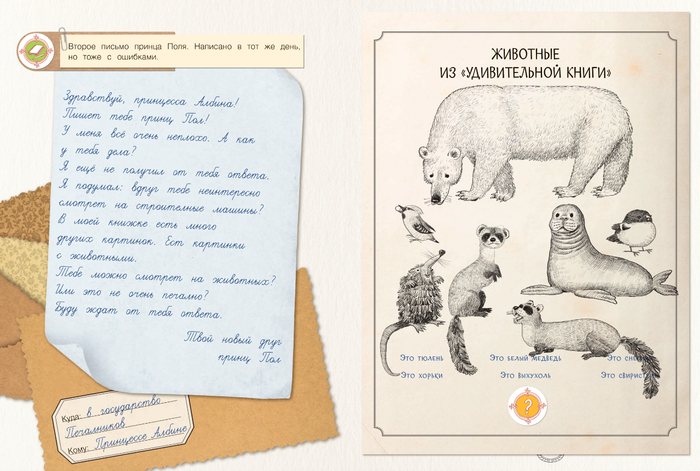 Второе письмо принца Поля. Написано в тот же день,
но тоже с ошибками.
Здравствуй, принцесса Албина!
Пишет тебе принц Пол!
У меня всё очень неплохо. А как
у тебя дела?
Я ещё не получил от тебя ответа.
Я подумал: вдруг тебе неинтересно
смотрет на строителные машины?
В моей книжке есть много
других картинок. Ест картинки
с животными.
Тебе можно смотрет на животных?
Или это не очень печално?
Буду ждат от тебя ответа.
Твой новый друг
принц Пол
Куда: в государство
Печалников
Кому: Принцессе Албине
ЖИВОТНЫЕ
ИЗ «УДИВИТЕЛЬНОЙ КНИГИ»
Это тюлень Это белый медведь Это
Это хорьки Это выхухоль Это
?